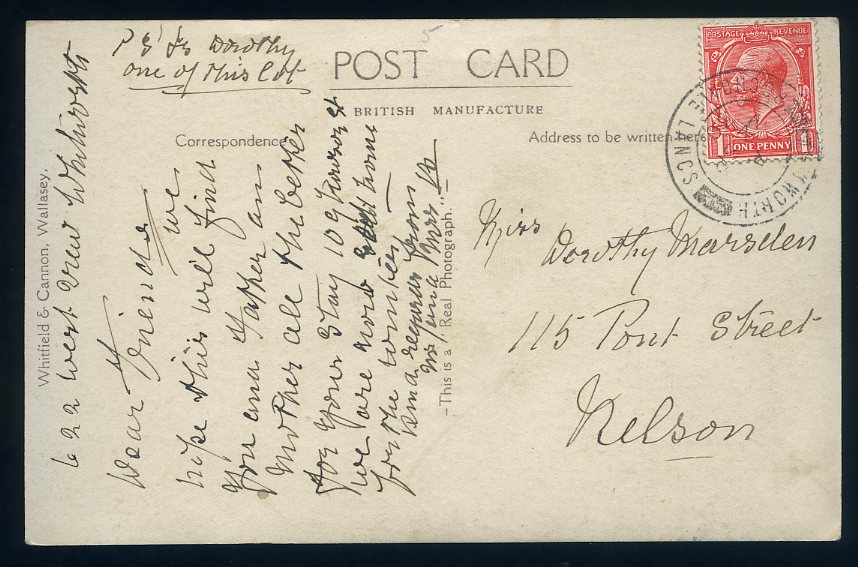 P S to Dorothy
one of this lot
POST CARD
BRITISH MANUFACTURE
Correspondence.
Address to be written here
Whitfield & Cannon, Wallasey.
-This is a "Real Photograph."-
POSTAGE REVENUE
1 ONE PENNY 1
WHITWORTH
LANCS
622 West View Whitworth
Dear Friends
we
hope this will find
you and Father an
Mother all the better
for your stay
we are now home
for the winter -
kind regards from
Mr and Mrs
Miss
Dorothy Marsden
115 Pont Street
Nelson
5